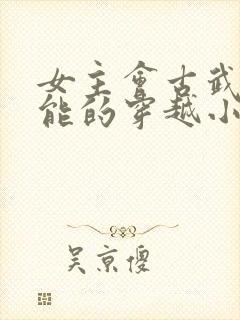 女主会古武
能的穿越小
吴京傻